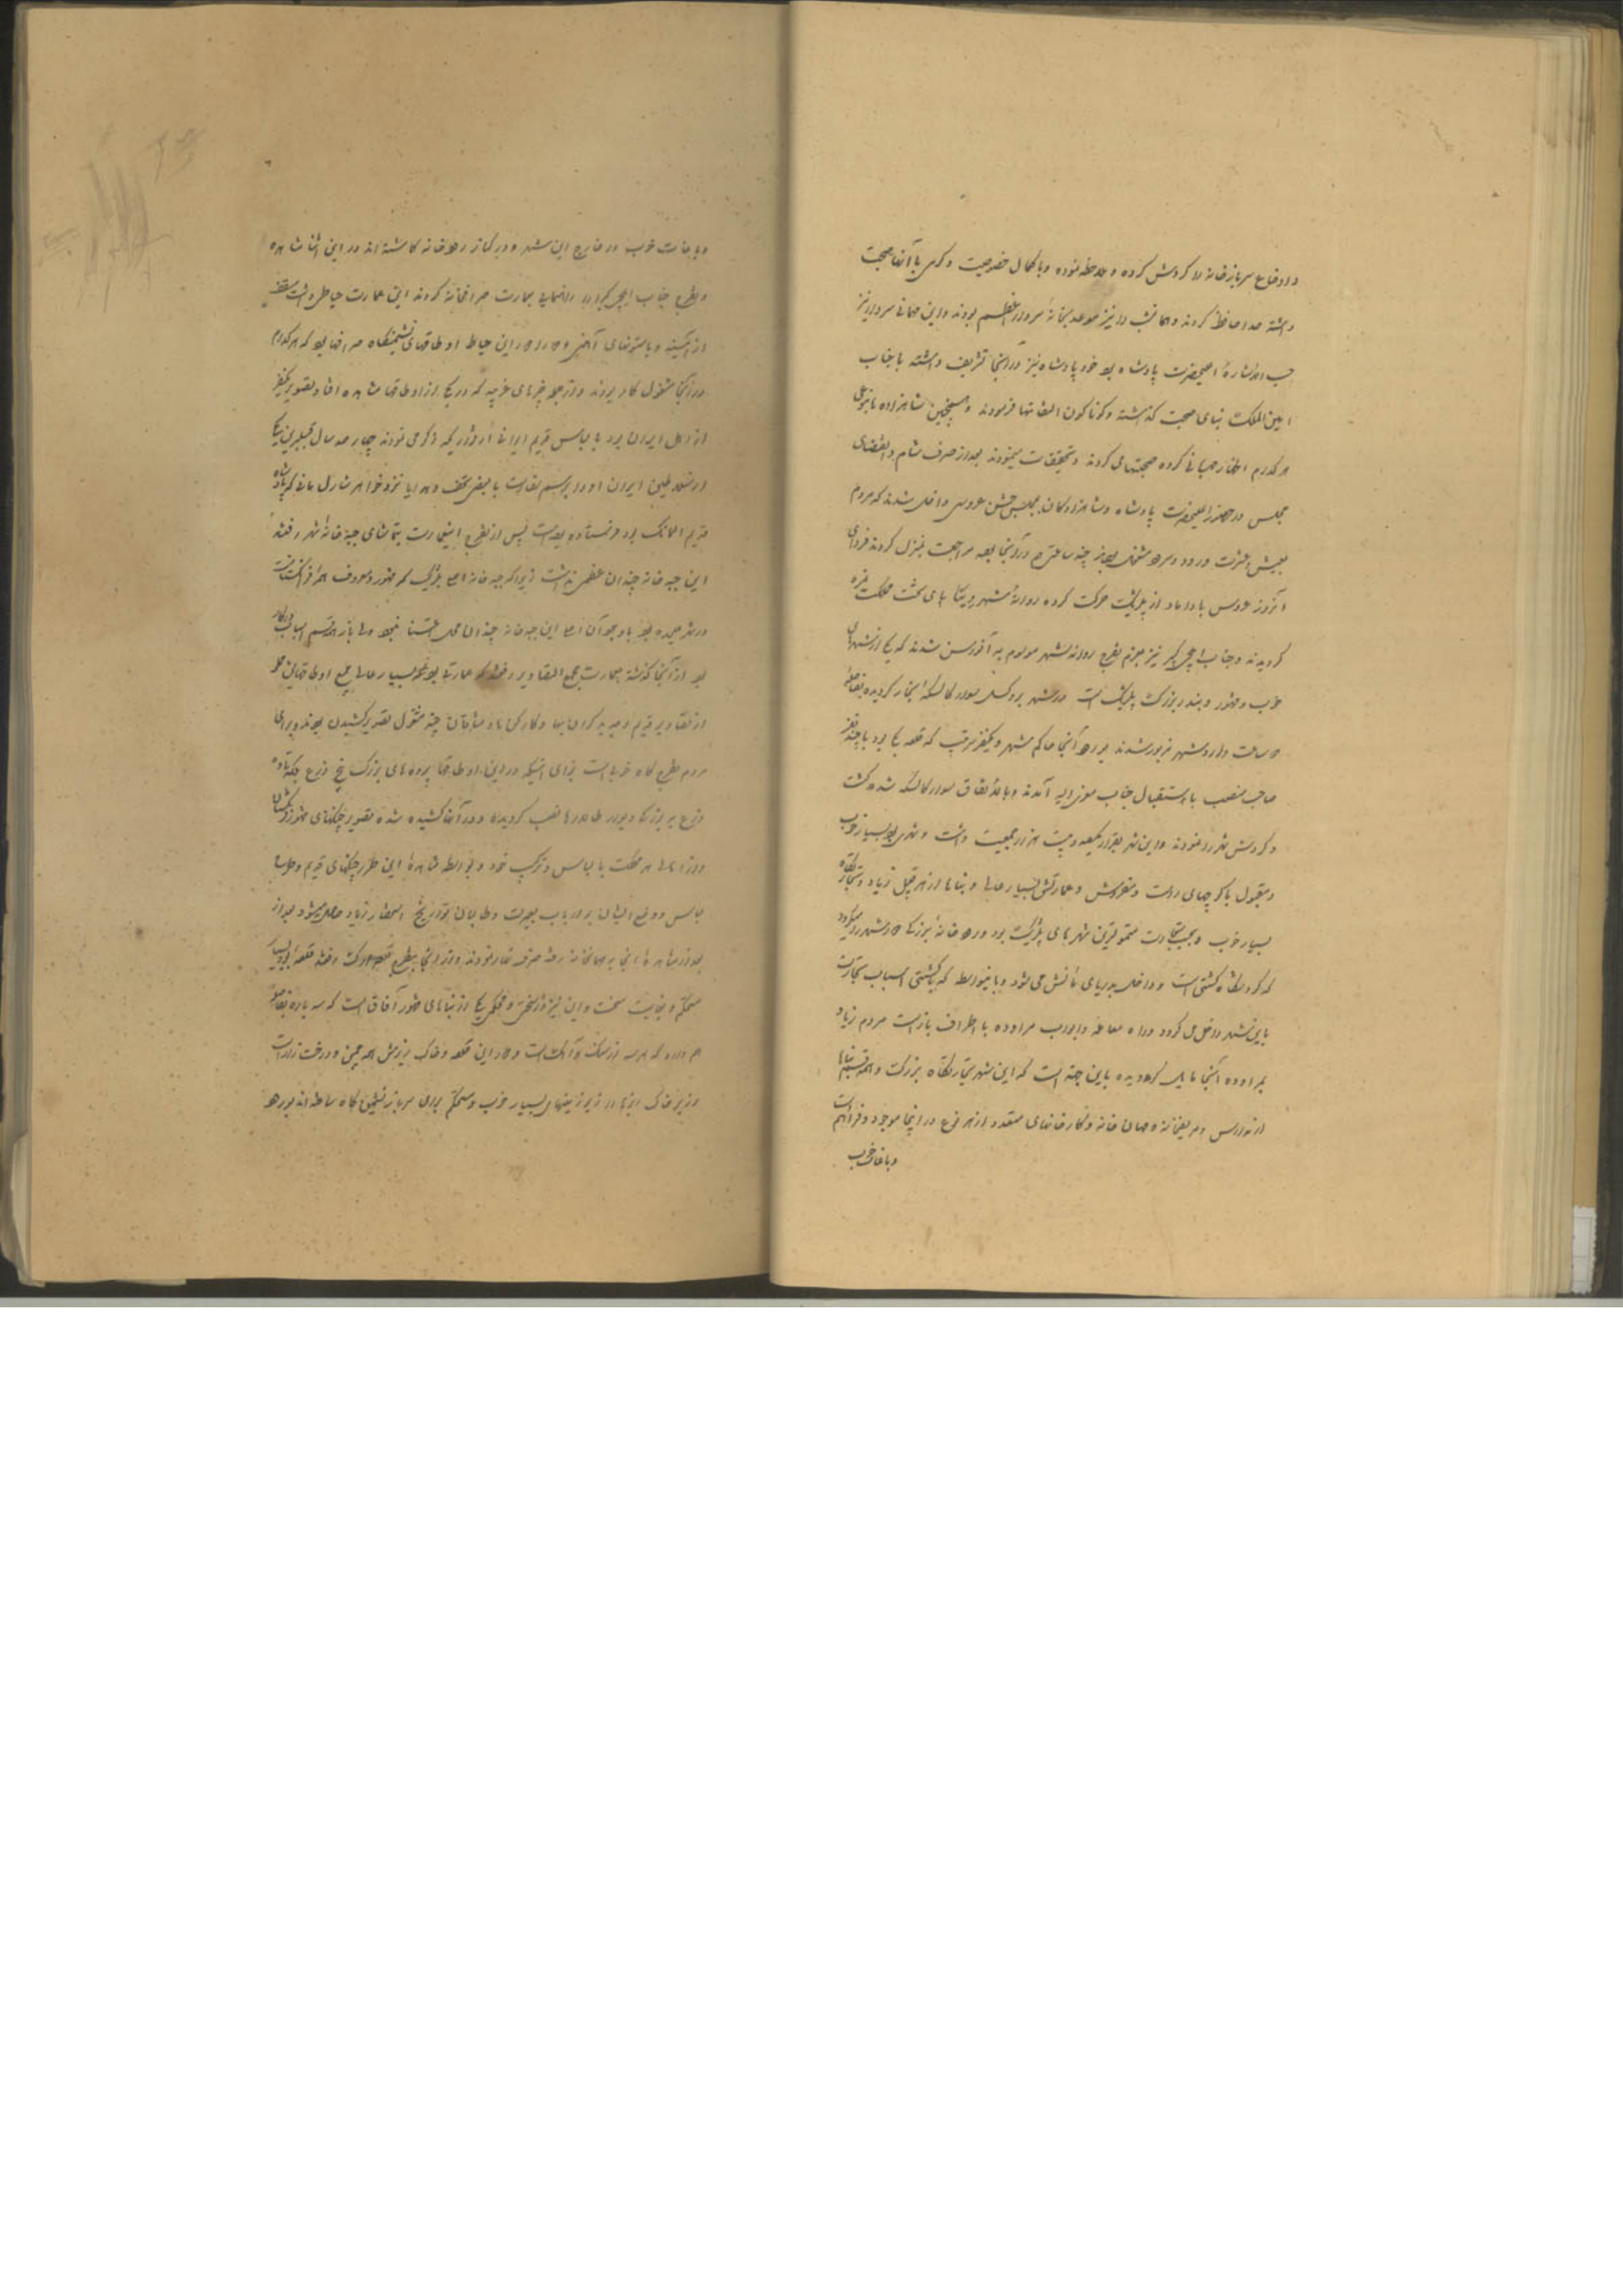 و اوضاع سربازخانه را گردش کرده و ملاحظه نموده و با کمال خصوصیت و گرمی با آنها صحبت
داشته خدا حافظ کردند و همانشب را نیز موعد بخانه سردار اعظم بودند و این مهمانی سردار نیز
حسب الاشاره اعلیحضرت پادشاه بود خود پادشاه نیز در آنجا تشریف داشته با جناب
امین الملک بنای صحبت گذاشته و گوناگون التفاتها فرمودند و همچنین شاهزاده
هر کدام اظهار مهربانی کرده صحبتها می کردند و تحقیقات مینمودند بعد از صرف شام و انقضای
مجلس در حضور اعلیحضرت پادشاه و شاهزادگان بمجلس جشن عروسی داخل شدند که مردم
بعیش و عشرت و سرور مشغول بودند چند ساعتی هم در آنجا بوده مراجعت بمنزل کردند فردای
آنروز عروس با داماد از بلژیک حرکت کرده روانه شهر وینا پای تخت مملکت نمسه
گردیدند و جناب ایلچی کبیر نیز بعزم تفرج روانه شهر موسوم به آنورس شدند که یکی از شهرهای
خوب و مشهور و بندر بزرگ بلژیک است در شهر بروکسل سوار کالسکه بخار گردیده بفاصله
ساعت وارد شهر مزبور شدند در آنجا حاکم شهر و یکنفر سرتیپ که قلعه بیگی بود با چند نفر
صاحب منصب باستقبال جناب معزی الیه آمدند و بالاتفاق سوار کالسکه شده گشت
و گردش شهر را نمودند و این شهر بقدر یکصد و بیست هزار جمعیت داشت و شهری بود بسیار خوب
و مقبول با کوچهای راست و مفروش و عمارتش بسیار عالی و بناها از هر قبیل زیاد و تجارتگاه
بسیار خوب و بحسب تجارت متمولترین شهرهای بلژیک بود رودخانه بزرگی در شهر رو میگردد
که گردشگاه کشتی است و داخل بدریای مانش می شود و باینواسطه که با کشتی اسباب تجارت
باین شهر داخل می گردد و راه معامله و ابواب مراوده با اطراف باز است مردم زیاد
بمراوده آنجا مایل گردیده باین جهت است که این شهر تجارتگاه بزرگ و همه قسم بناها
از مدارس و مریضخانه و مهمان خانه و کارخانهای متعدد از هر نوع در اینجا موجود و فراهم است
و باغات خوب
و باغات خوب در خارج این شهر و در کنار رودخانه کاشته اند در این اثنا مشاهده
و تفرج جناب ایلچی کبیر را راهنمایی بعمارت صرافخانه کردند این عمارت حیاطی داشت سقفش
از آئینه و با ستونهای آهنی و در این حیاط اوطاقهای نشیمنگاه صرافها بود که هر کدام
در آنجا مشغول کار بودند و از جمله چیزهای غریبه که در یکی از اوطاقها مشاهده افتاد تصویر یکنفر
از اهل ایران بود با لباس قدیم ایرانی که ذکر می نمودند چهار صد سال قبل از این یکی
از سلاطین ایران او را برسم سفارت با بعضی تحف و هدایا نزد شارل که پادشاه
قدیم المانک بود فرستاده بوده است پس از تفرج این عمارت بتماشای جبه خانه شهر رفتند
این جبه خانه چندان عظمی نداشت زیرا که جبه خانه اصل بلژیک که مشهور و معروف همه فرنگستانست
در شهر بود با وجود آن اصل این جبه خانه چندان محل اعتنا نبود ولی باز همه قسم اسباب در کار
بود از آنجا گذشته بعمارت مجمع التصاویر رفتند که عمارتی بود بسیار عالی جمیع اوطاقهایش مملو
از تصاویر قدیم و جدید گران بها و کار کن نقاشان چند مشغول تصویر کشیدن بودند و برای
مردم تفرج گاه خوبی است برای اینکه در این اوطاقها پرده های بزرگ پنج ذرع بلکه تا ده
ذرع بر بزرگی دیوار طالارها نصب گردیده و در آنها کشیده شده تصویر جنگهای مشهور فرنگستان
و وزرا و اهالی هر مملکت با لباس و ترکیب خود و بواسطه مشاهده این طرز جنگهای قدیم و طرز
لباس و وضع ایشان بر ارباب بصیرت و طالبان تواریخ استحضار زیاد حاصل میشود بعد از
بعد از مشاهده آنجا به مهمانخانه رفته صرف نهار نمودند و از آنجا بتفرج قلعه ارک رفتند قلعه بود بسیار
مستحکم و بغایت سخت و این نیز در سختی و محکمی یکی از بناهای مشهور آفاق است که سه باره بفاصله
هم دارد که هر سه از سنگ و آهک است و در این قلعه و خاک ریزش همه چمن و درخت زار است
و زیر خاک ریزها را زیر زمینهای بسیار خوب و مستحکم برای سرباز نشیمن گاه ساخته اند